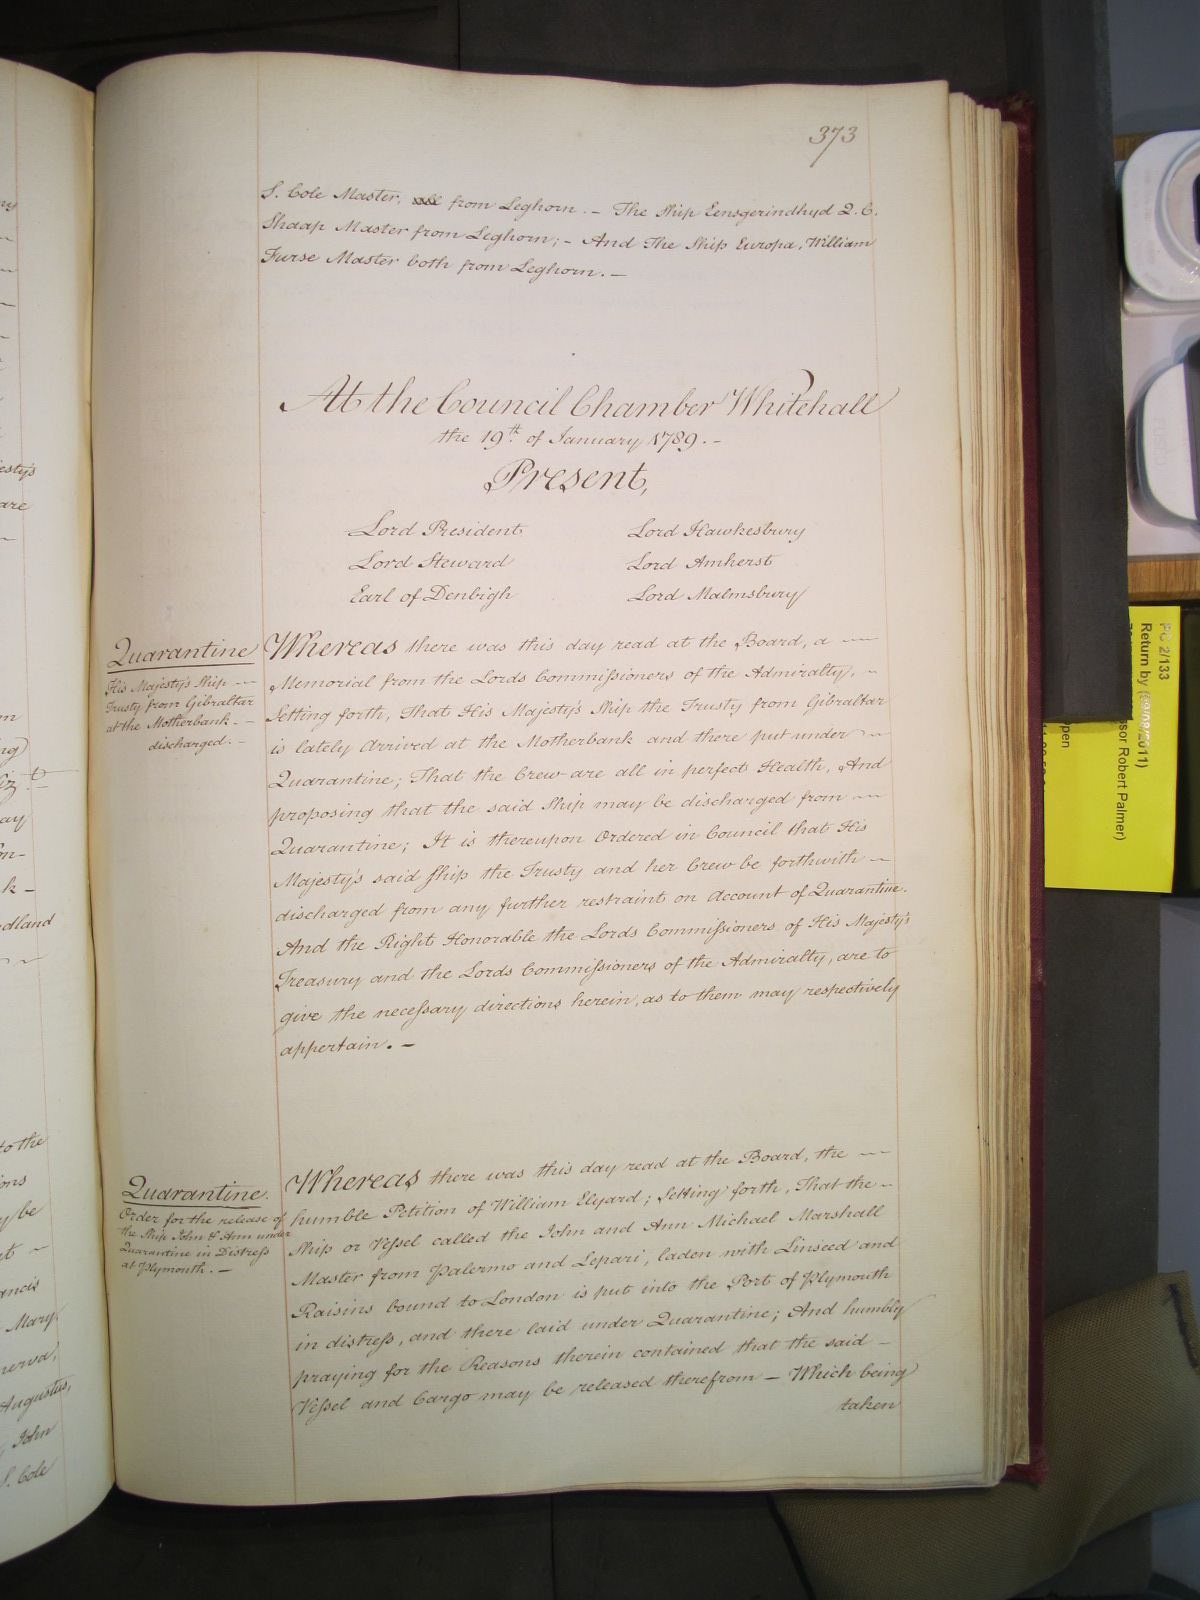 373
S. Cole Master, from Leghorn. – The Ship Eensgerindhyd 2. C.
Shaap Master from Leghorn; – And The Ship Europa, William
Furse Master both from Leghorn. –
At the Council Chamber Whitehall
the 19th of January 1789. –
Present,
Lord President Lord Hawkesbury
Lord Steward Lord Amherst
Earl of Denbigh Lord Malmsbury
Quarantine
His Majesty's Ship
Trusty from Gibraltar
at the Motherbank –
discharged. –
Whereas there was this day read at the Board, a
Memorial from the Lords Commissioners of the Admiralty,
Setting forth, That His Majesty's Ship the Trusty from Gibraltar
is lately Arrived at the Motherbank and there put under
Quarantine; That the Crew are all in perfect Health, And
proposing that the said Ship may be discharged from
Quarantine; It is thereupon Ordered in Council that His
Majesty's said Ship the Trusty and her Crew be forthwith
discharged from any further restraint on Account of Quarantine.
And the Right Honorable the Lords Commissioners of His Majesty's
Treasury and the Lords Commissioners of the Admiralty, are to
give the necessary directions herein, as to them may respectively
appertain. –
Quarantine.
Order for the release of
the Ship John & Ann under
Quarantine in Distress
at Plymouth. –
Whereas there was this day read at the Board, the
humble Petition of William Elyard; Setting forth, That the
Ship or Vessel called the John and Ann Michael Marshall
Master from Palermo and Lepari, laden with Linseed and
Raisins bound to London is put into the Port of Plymouth
in distress, and there laid under Quarantine; And humbly
praying for the Reasons therein contained that the said
Vessel and Cargo may be released therefrom – Which being
taken
to the
y be
Mary
Augustus,
John
S. Cole
PC 2/133
Return by (19/08/2011)
sor Robert Palmer)